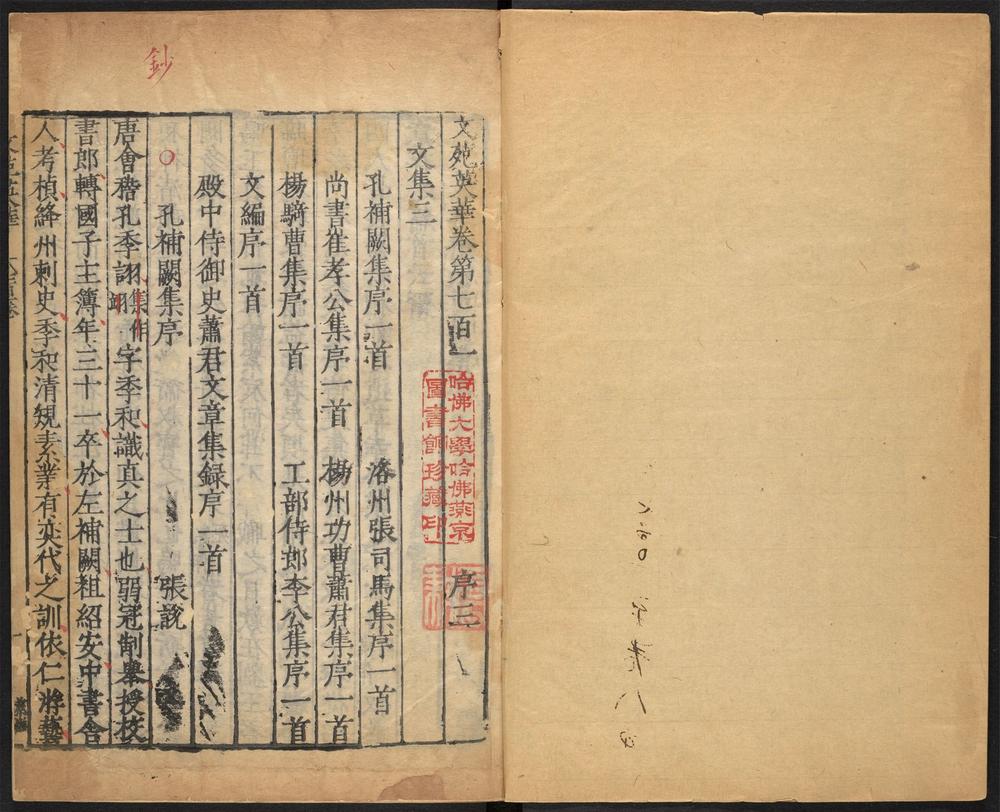 文苑英華卷第七百一 序三
文集三
孔補闕集序一首 洛州張司馬集序一首
尚書崔孝公集序一首 楊州功曹蕭君集序一首
楊騎曹集序一首 工部侍郎李公集序一首
文編序一首
殿中侍御史蕭君文章集録序一首
孔補闕集序 張說
唐會稽孔季詡集作翊字季和識真之士也弱冠制舉授校
書郎轉國子主簿年三十一卒於左補闕祖紹安中書舍
人考楨絳州刺史季和清規素業有奕代之訓依仁游藝
鈔
哈佛大學哈佛燕京
圖書館珍藏印